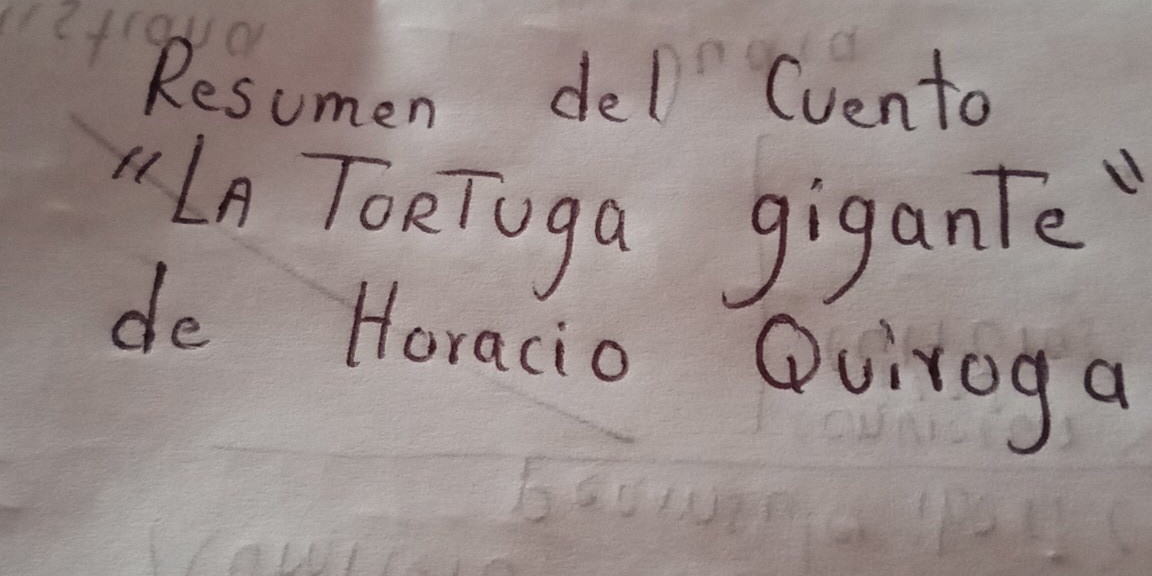 Resumen del Cuento
"LA TORTuga giganTe"
de Horacio Quiroga